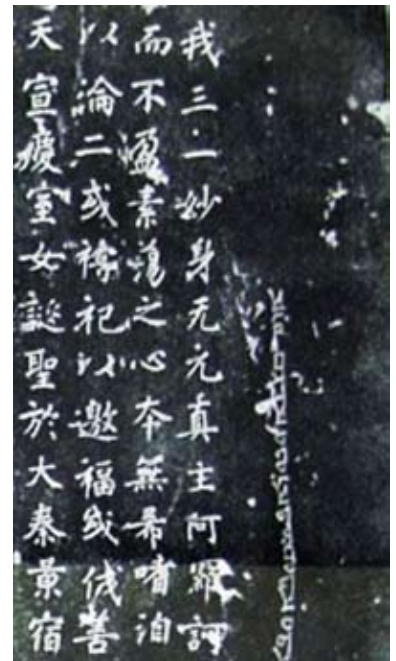 我三一妙身无元真主阿羅訶
而不盈素蕩之心夲無希嗜洎
以淪二或禱祀以邀福或伐善
天宣慶室女誕聖於大秦景宿